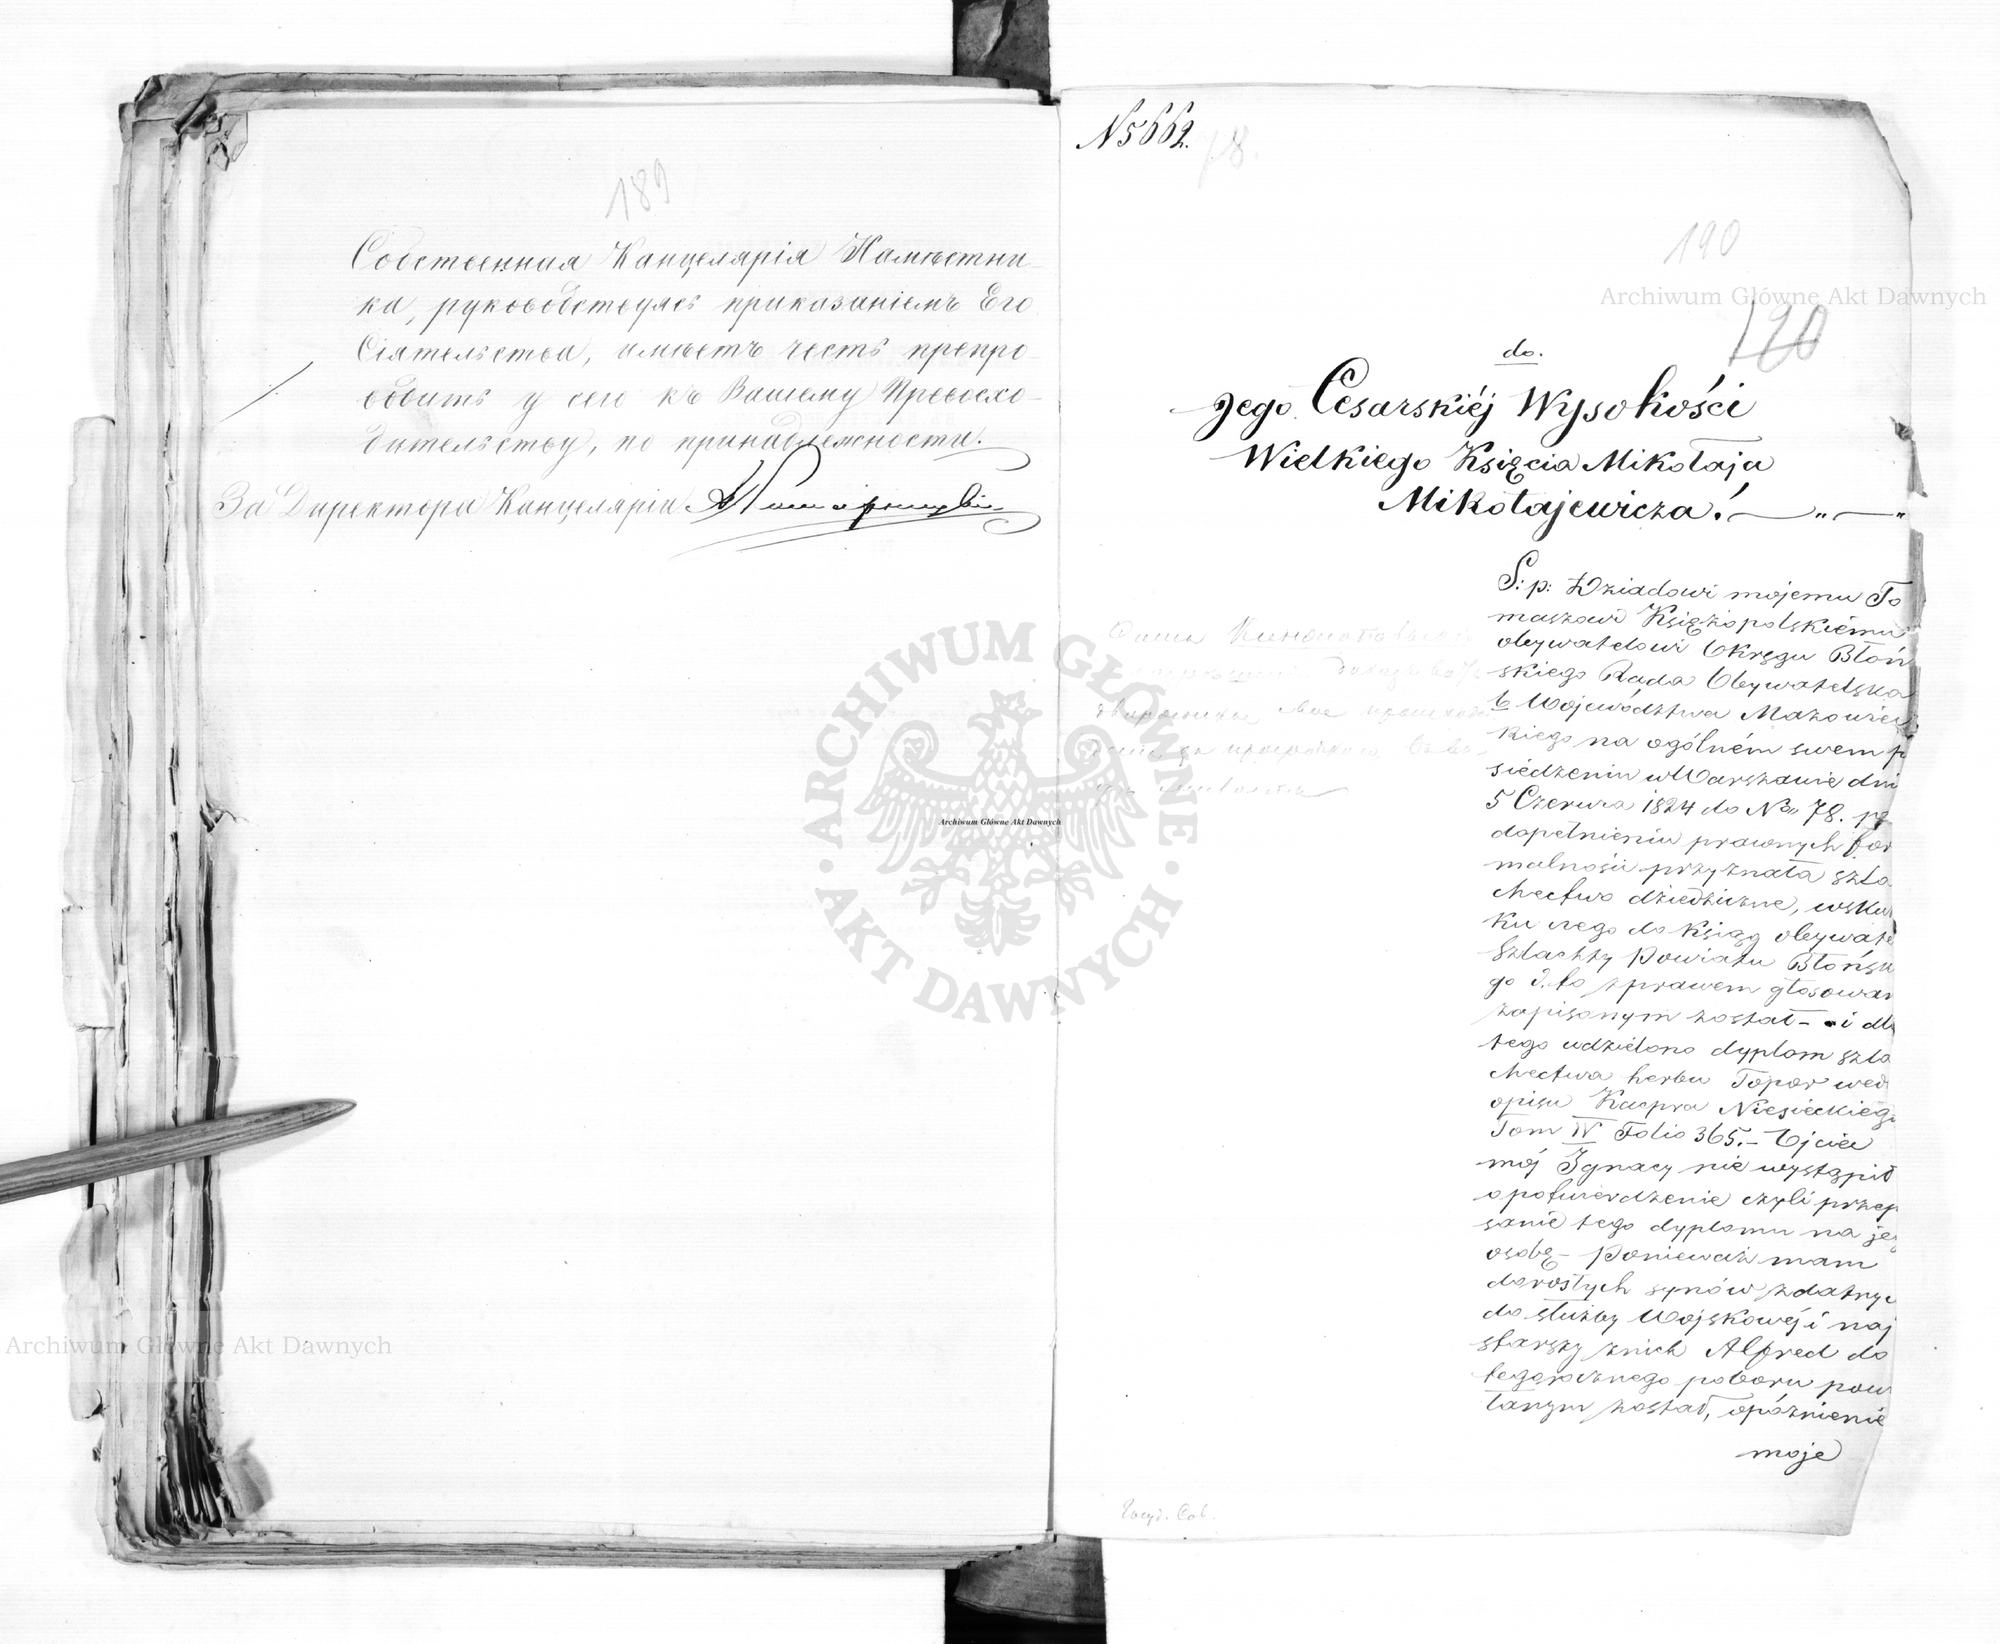 189
Собственная Канцелярія Намѣстни-
ка, руководствуясь приказаніемъ Его
Сіятельства, имѣетъ честь препро-
водить у сего къ Вашему Превосхо-
дительству, по принадлежности.
За Директора Канцеляріи
N 5662.
78.
190
120
do.
Jego Cesarskiéj Wysokości
Wielkiego Księcia Mikołaja
Mikołajewicza!
Ś: p: Dziadowi mojemu To
maszowi Księżopolskiému
obywatelowi Okręgu Błoń
skiego Rada Obywatelska
b Wojewódstwa Mazowiec
kiego na ogólném swem p
siedzeniu w Warszawie dni
5 Czerwca 1824 do No 78. po
dopełnieniu prawnych for
malności przyznała szla
chectwo dziedziczne, wsku
ku czego do Ksiąg obywate
Szlachty Powiatu Błońsk
go z prawem głosowan
zapisanym został – i dla
tego udzielono dyplom szla
chectwa herbu Topor wedł
opisu Kacpra Niesieckieg
Tom IV Folio 365. – Ojciec
mój Ignacy nie wystąpił
o potwierdzenie czyli przep
sanie tego dyplomu na jeg
osobę – Ponieważ mam
dorosłych synów zdatnyc
do służby Wojskowéj i naj
starszy z nich Alfred do
tegorocznego poboru pow
łanym został, opóźnienie
moje
Госуд. Сов.
Archiwum Główne Akt Dawnych
Archiwum Główne Akt Dawnych
Archiwum Główne Akt Dawnych
ARCHIWUM GŁÓWNE
AKT DAWNYCH